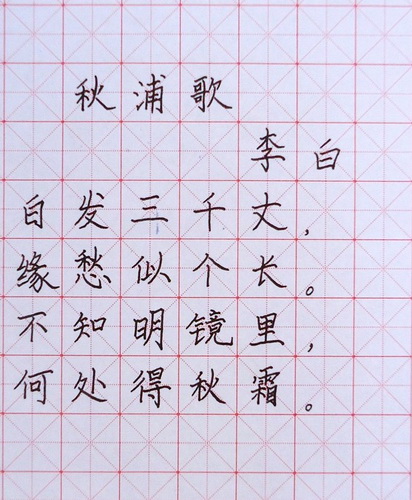 秋浦歌
李白
白发三千丈，
缘愁似个长。
不知明镜里，
何处得秋霜。